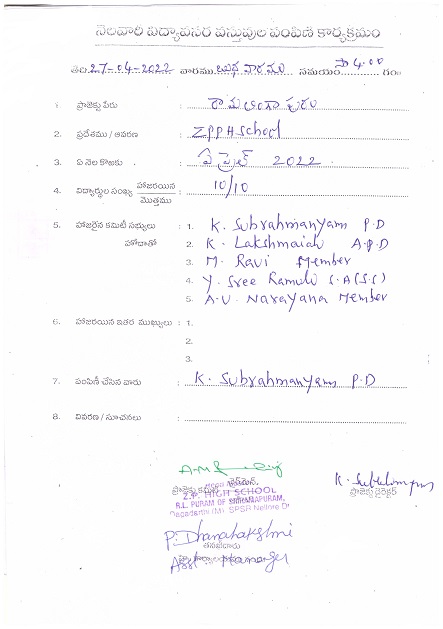 నెలవారి విద్యావసర వస్తువుల పంపిణీ కార్యక్రమం
తేది 27-04-2022 వారము బుధ వారము సమయం సా 4.00 గం
1. ప్రాజెక్టు పేరు : రామలింగాపురం
2. ప్రదేశము / ఆవరణ : ZPPH School
3. ఏ నెల కొఱకు : ఏప్రిల్ 2022
4. విద్యార్థుల సంఖ్య హాజరయిన / మొత్తము : 10/10
5. హాజరైన కమిటీ సభ్యులు : 1. K. Subrahmanyam P.D
హోదాతో 2. K. Lakshmaiah A.P.D
3. M. Ravi Member
4. Y. Sree Ramulu S.A(S.S)
5. A.V. Narayana Member
6. హాజరయిన ఇతర ముఖ్యులు : 1.
2.
3.
7. పంపిణీ చేసిన వారు : K. Subrahmanyam P.D
8. వివరణ / సూచనలు :
ప్రాజెక్టు డైరెక్టర్
Z.P. HIGH SCHOOL
R.L. PURAM OF
Dagadarthi (M), SPSR Nellore
P. Dhanalakshmi
Asst. Manager